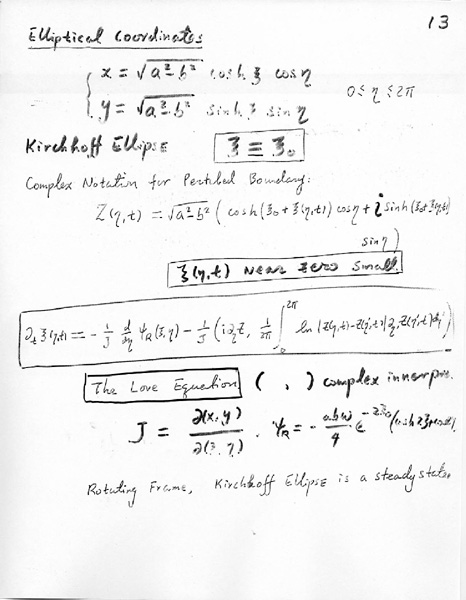 13
Elliptical Coordinates
x = √a²-b² cosh ξ cos η
y = √a²-b² sinh ξ sin η
0 ≤ η ≤ 2π
Kirchhoff Ellipse ξ ≡ ξ₀
Complex Notation for Pertibed Boundary:
Z(η,t) = √a²-b² ( cosh(ξ₀+ξ(η,t)) cos η + i sinh(ξ₀+ξ(η,t))
sin η )
ξ(η,t) near zero small.
∂ₜ ξ(η,t) = - 1/J d/dη Ψ_R(ξ,η) - 1/J (i∂_η Z, 1/2π ∫₀^2π ln |Z(η,t)-Z(η',t)| ∂_η' Z(η',t) dη')
The Love Equation ( , ) complex innerpro.
J = ∂(x,y)/∂(ξ,η) . Ψ_R = - abω/4 e^-2ξ₀ (cosh 2ξ
Rotating Frame, Kirchhoff Ellipse is a steady state.